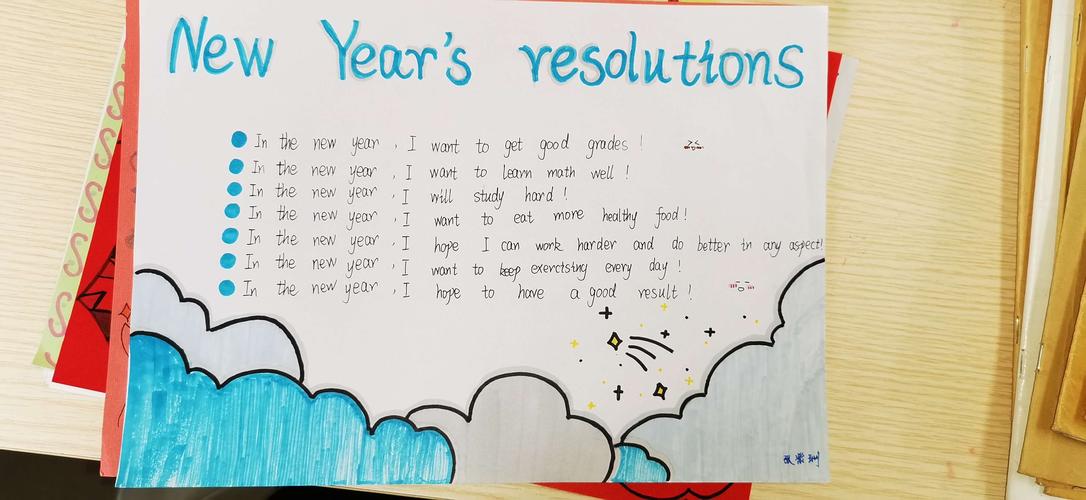 New Year's resolutions
In the new year, I want to get good grades!
In the new year, I want to learn math well!
In the new year, I will study hard!
In the new year, I want to eat more healthy food!
In the new year, I hope I can work harder and do better in any aspect!
In the new year, I want to keep exercising every day!
In the new year, I hope to have a good result!